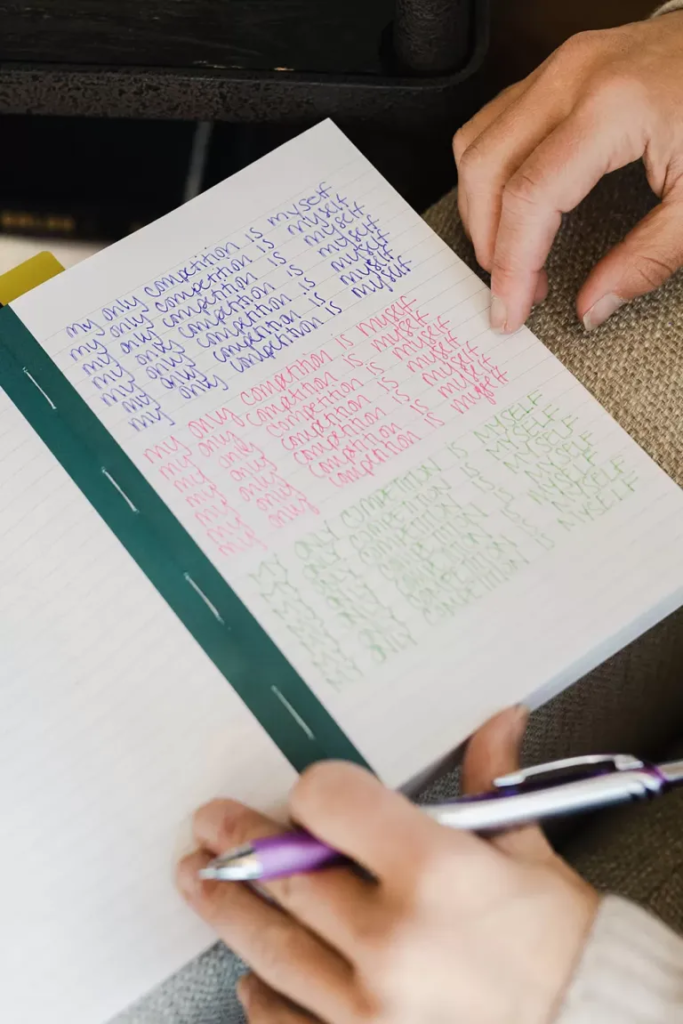 my only competition is myself
my only competition is myself
my only competition is myself
my only competition is myself
my only competition is myself
my only competition is myself
my only competition is myself
my only competition is myself
my only competition is myself
my only competition is myself
my only competition is myself
my only competition is myself
MY ONLY COMPETITION IS MYSELF
MY ONLY COMPETITION IS MYSELF
MY ONLY COMPETITION IS MYSELF
MY ONLY COMPETITION IS MYSELF
MY ONLY COMPETITION IS MYSELF
MY ONLY COMPETITION IS MYSELF